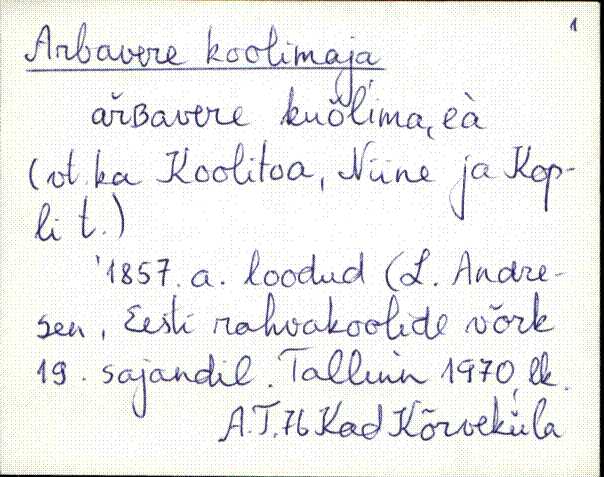 1
Arbavere koolimaja
ar̆ʙavere kuŏlima,eà
(vt. ka Koolitoa, Niine ja Kop-
li t.)
1857. a. loodud (L. Andre-
sen, Eesti rahvakoolide võrk
19. sajandil. Tallinn 1970, lk.
A.T.76 Kad Kõrveküla